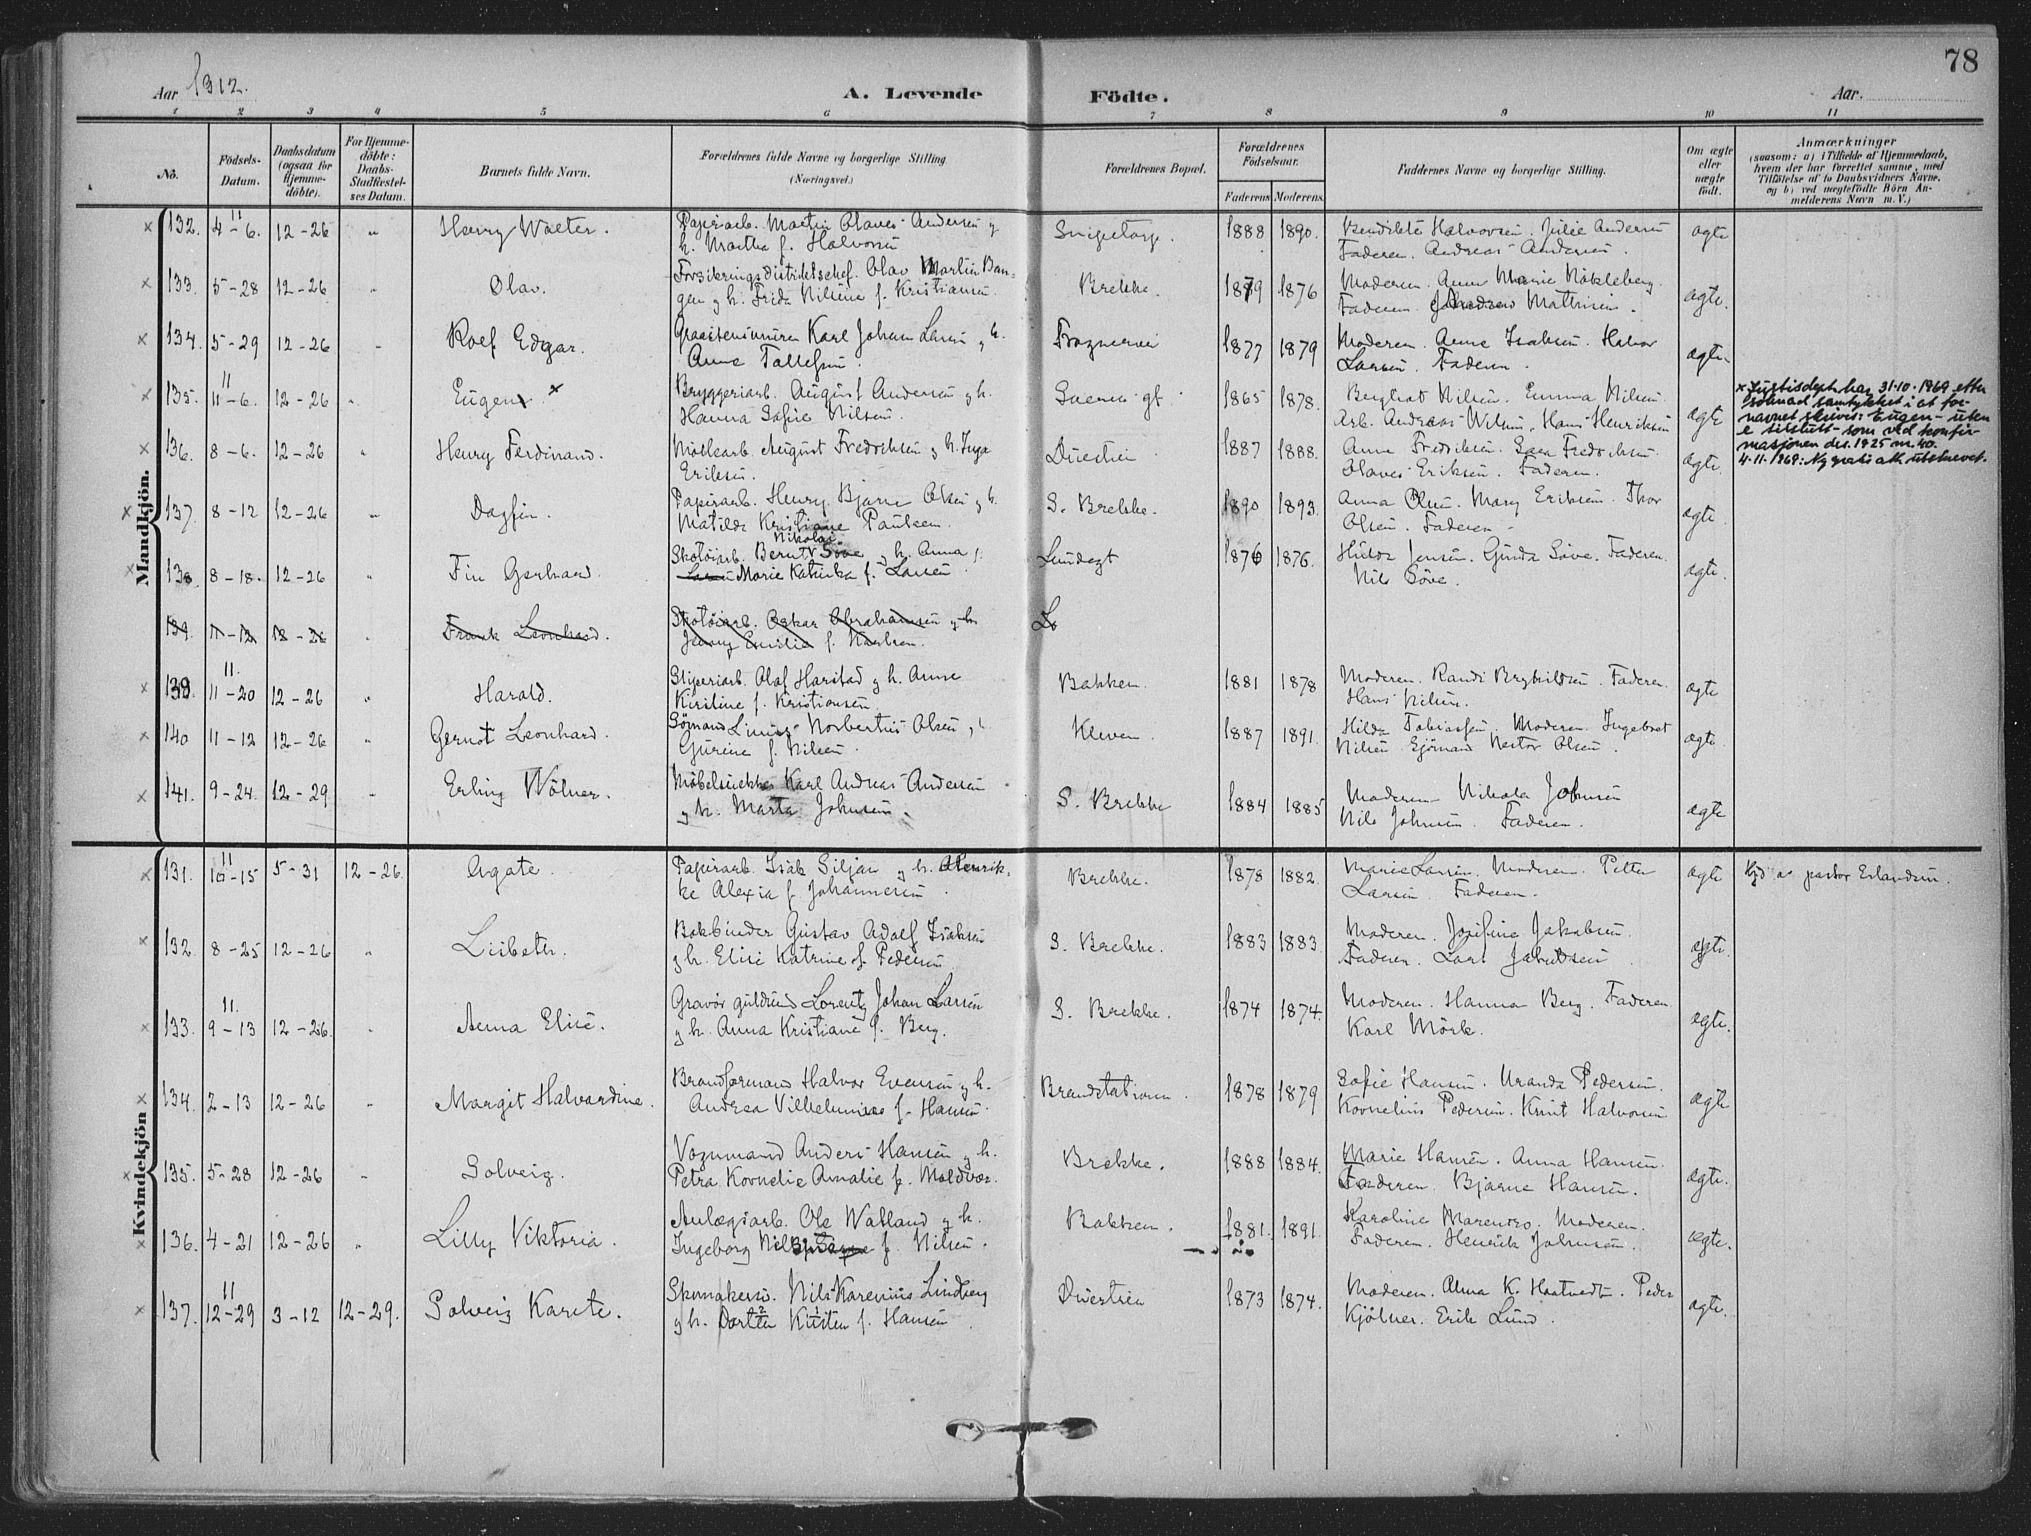 78
Aar 1912.
A. Levende Födte.
Aar.
1 2 3 4 5 6 7 8 9 10 11
No.
Födsels-
Datum.
Daabsdatum
(ogsaa for
Hjemme-
döbte).
For Hjemme-
döbte:
Daabs-
Stadfæstel-
ses Datum.
Barnets fulde Navn.
Forældrenes fulde Navne og borgerlige Stilling
(Næringsvei.)
Forældrenes Bopæl.
Forældrenes
Födselsaar.
Faderens Moderens
Faddernes Navne og borgerlige Stilling.
Om ægte
eller
uægte
födt.
Anmærkninger
(saasom: a) i Tilfælde af Hjemmedaab,
hvem der har forrettet samme, med
Tilföielse af to Daabsvidners Navne.
og b) ved uægtefödte Börn An-
melderens Navn m. V.)
Mandkjön.
× 132. 4-11-6. 12-26 " Harry Walter. Papirarb. Martin Olaves Andersen g
h. Martha f. Halvorsen Snipetorp. 1888 1890. Bendikte Halvorsen. Julie Andersen
Faderen. Andreas Andersen. ægte
× 133. 5-28 12-26 " Olav. Forsikringsdistriktschef. Olav Martin Ban-
gen g h. Frida Nilsine f. Kristiansen. Brekke. 1879 1876 Moderen. Anna Marie Nökleberg.
Faderen. Mathisen. ægte.
× 134. 5-29 12-26 " Rolf Edgar. Karl Johan Larsen g h.
Anne Tallefsen. Frognervei 1877 1879 Moderen. Anne Isaksen. Halvor
Larsen. Faderen. ægte
× 135. 11-11-6. 12-26 " Eugen × Bryggeriarb. August Andersen g h.
Hanna Sofie Nilsen. gt. 1865 1878. Nilsen. Emma Nilsen.
Arb. Andreas Nilsen, Hans Henriksen ægte
× Justisdept. har 31.10.1969 etter
söknad samtykket i at for-
navnet skrives: Eugen - uten
e tilslutt - som ved konfir-
masjonen des. 1925 nr. 40.
4.11.1969: Ny gratis att. utskrevet.
× 136. 8-6. 12-26 " Henry Ferdinand. Möllearb. August Fredriksen g h. Inga
Eriksen. Duestien 1887 1888. Anne Fredriksen. Sara Fredriksen.
Olaves Eriksen. Faderen. ægte.
× 137. 8-12 12-26 " Dagfin. Papirarb. Henry Bjarne Olsen g h.
Matilde Kristiane Paulsen. S. Brekke. 1890 1893. Anna Olsen. Mary Eriksen. Thor
Olsen. Faderen. ægte.
× 138 8-18. 12-26 " Fin Gerhard. Skotöiarb. Bernt Nikolai Söve g h. Anna
Marie Katinka f. Larsen Lundegt 1876 1876. Hilda Jensen. Gunda Söve. Faderen.
Nils Söve. ægte.
139. 11-12 12-26 " Frank Leonhard. Skotöiarb. Oskar Abrahamsen g h
Jenny Emilie f. L
× 139. 11-11-20 12-26 " Harald. Sliperiarb. Olaf Harstad g h. Anne
Kirstine f. Kristiansen. Bakken. 1881 1878 Moderen. Randi Faderen.
Hans Nilsen. ægte
× 140 11-12 12-26 " Gernot Leonhard. Sömand Linus Norbertus Olsen g h
Gurine f. Nilsen. Kleven. 1887 1891. Hilda Tobiassen. Moderen. Ingebret
Nilsen. Sjömand Nestor Olsen. ægte.
× 141. 9-24. 12-29 " Erling Wölner. Möbelsnekker Karl Andreas Andersen
g h. Marta Johnsen. S. Brekke 1884 1885 Moderen. Nikola Johnsen
Nils Johnsen. Faderen. ægte
Kvindekjön
× 131. 10-11-15 5-31 12-26. Agate. Papirarb. Isak Siljan g h. Henrik-
ke Alexia f. Johannesen. Brekke. 1878 1882. Marie Larsen. Moderen. Petter
Larsen. Faderen. ægte Hjd av pastor Erlandsen.
× 132. 8-25 12-26 " Lisbeth. Bokbinder Gustav Adolf Isaksen
g h. Elise Katrine f. Pedersen S. Brekke. 1883 1883. Moderen. Josefine Jakobsen.
Faderen. Lars Jakobsen ægte.
× 133. 9-11-13 12-26. " Anna Elise. Gravör guldsm Lorentz Johan Larsen
g h. Anna Kristiane f. Berg. S. Brekke. 1874 1874. Moderen. Hanna Berg. Faderen.
Karl Mörk. ægte.
× 134. 2-13 12-26 " Margit Halvardine. Brandformand Halvor Evensen g h.
Andrea Vilhelmine f. Hansen. Brandstationen. 1878 1879 Sofie Hansen. Uranda Pedersen.
Kornelius Pedersen. Knut Halvorsen ægte
× 135. 5-28 12-26 " Solveig. Vognmand Anders Hansen g h.
Petra Kornelie Amalie f. Moldvær. Brekke. 1888 1884. Marie Hansen. Anna Hansen.
Faderen. Bjarne Hansen. ægte.
× 136. 4-21 12-26 " Lilly Viktoria. Anlægsarb. Ole Watland g h.
Ingeborg f. Nilsen. Bakken. 1881. 1891. Karoline Moderen.
Faderen. Henrik Johnsen. ægte.
× 137. 12-11-29 3-12 12-29. Solveig Karete. Skomakersv. Nils Karenius Lindberg
g h. Dortea Kirsten f. Hansen Duestien 1873 1874. Moderen. Alma K. Hoatvedt. Peder
Kjölner. Erik Lund. ægte.